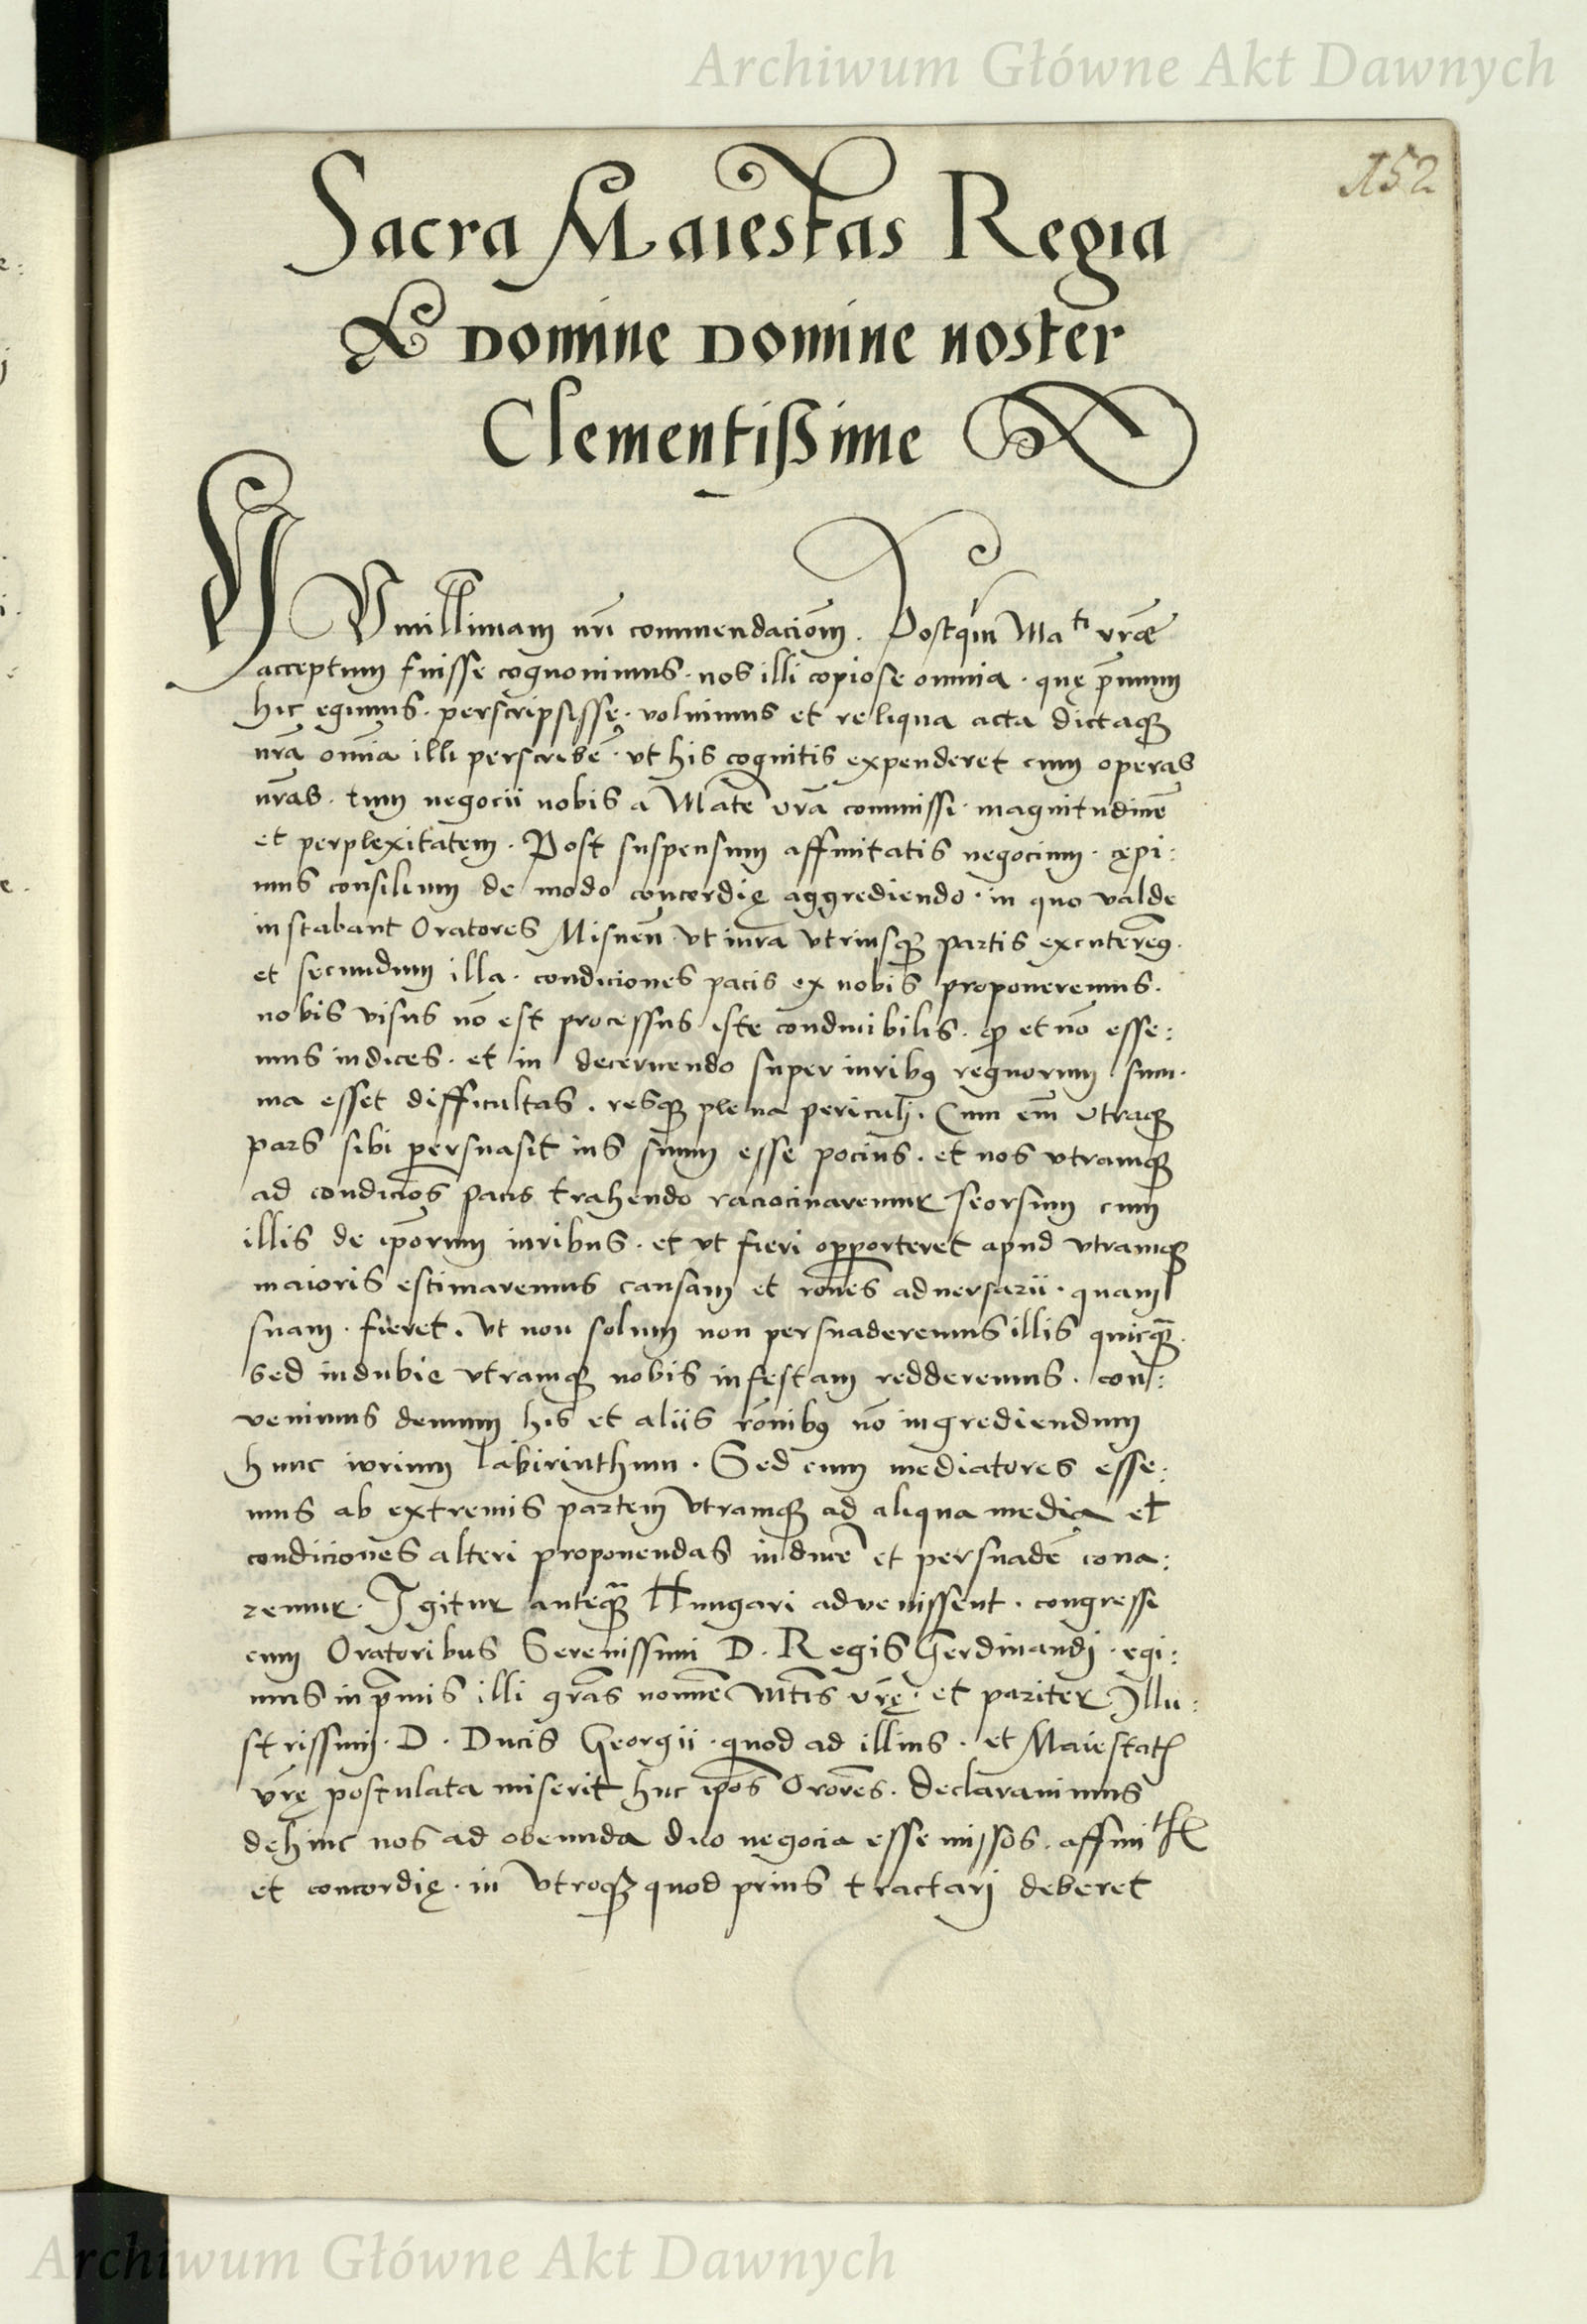 Archiwum Główne Akt Dawnych
152
Sacra Maiestas Regia
& Domine Domine noster
Clementissime
HVmillimam nri commendaciom. Postqm Ma ti vrae
acceptum fuisse cognouimus. nos illi copiose omnia. quę pmum
hic egimus. perscripsisse. voluimus et reliqua acta dictaq
nra omia illi perscribe. vt his cognitis expenderet cum operas
nras. tum negocii nobis a Mate vra commissi. magnitudine
et perplexitatem. Post suspensum affinitatis negocium. cępi:
mus consilium de modo concordię aggrediendo. in quo valde
instabant Oratores Misnen vt iura vtriusq partis excuterem9.
et secundum illa. condiciones pacis ex nobis proponeremus.
nobis visus no est processus iste conducibilis. q et no esse:
mus iudices. et in decernendo super iurib9 regnorum sum.
ma esset difficultas. resq plena periculi. Cum em vtraq
pars sibi persuasit ius suum esse pocius. et nos vtramq
ad condicios pacis trahendo raciocinaremur seorsum cum
illis de iporum iuribus. et vt fieri opporteret apud vtramq
maioris estimaremus causam et rones aduersarii. quam
suam. fieret. vt non solum non persuaderemus illis quicq.
sed indubie vtramq nobis infestam redderemus. con:
uenimus demum his et aliis ronib9 no ingrediendum
hunc iurium labirinthum. Sed cum mediatores esse:
mus ab extremis partem vtramq ad aliqua media et
condiciones alteri proponendas inducę et persuade cona:
remur. Igitur anteq Hungari aduenissent. congressi
cum Oratoribus Serenissimi D. Regis Ferdinandi. egi:
mus in pmis illi gras nomine Mtis vrę. et pariter Illu:
strissimi. D. Ducis Georgii. quod ad illius. et Maiestatis
vrę postulata miserit huc ipos Orores. declarauimus
dehinc nos ad obeunda duo negocia esse missos. affinitatis
et concordię. in vtroq quod prius tractari deberet
Archiwum Główne Akt Dawnych